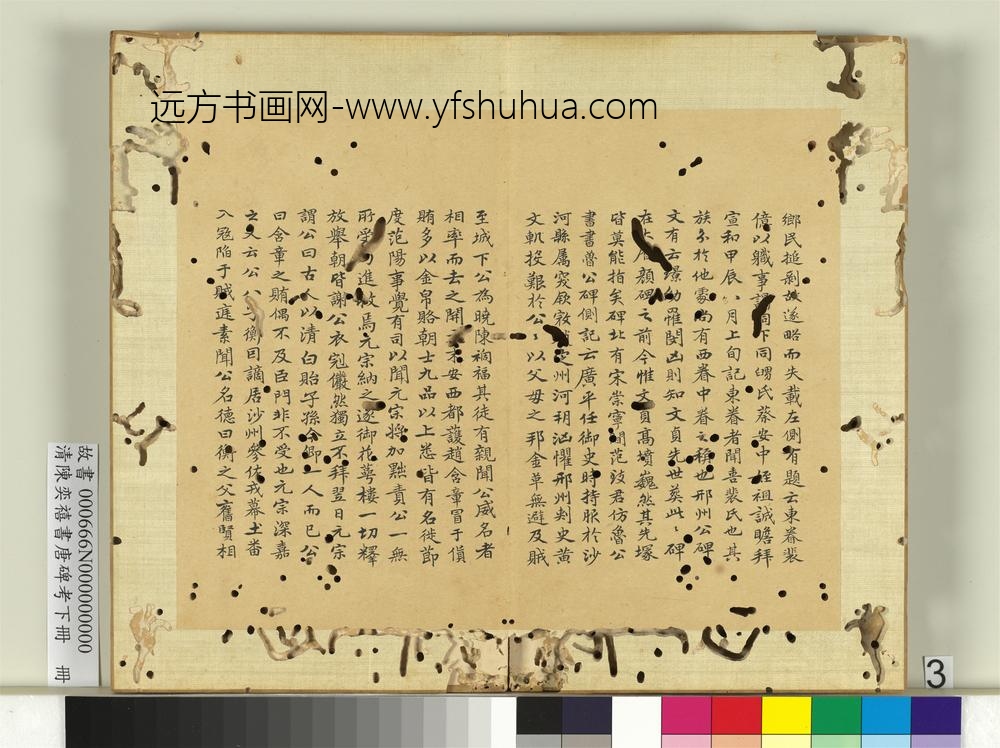 远方书画网-www.yfshuhua.com
鄉民搥剥故遂略而失載左側有題云東眷裴
億以職事謁祠下同甥氏蔡安中姪祖誠瞻拜
宣和甲辰八月上旬記東眷者聞喜裴氏也其
族分於他處尚有西眷中眷之稱也邢州公碑
文有云璟幼罹閔凶則知文貞先世葬此〻碑
在 顏碑之前今惟文貞髙墳巍然其先塚
皆莫能指矣碑北有宋崇寧間范致君仿魯公
書書魯公碑側記云廣平任御史時持服於沙
河縣屬突厥寇 定州河朔汹懼邢州刺史黄
文軌投艱於公〻以父母之邦金革無避及賊
至城下公為曉陳禍福其徒有親聞公威名者
相率而去之開 末安西都護趙含章冒于貨
賄多以金帛賂朝士九品以上悉皆有名後節
度范陽事覺有司以聞元宗將加黜責公一無
所受 進救焉元宗納之遂御花萼樓一切釋
放舉朝皆謝公衣冠儼然獨立不拜翌日元宗
謂公曰古人以清白貽子孫今卿一人而已公
曰含章之賄偶不及臣門非不受也元宗深嘉
之又云公 子衡因謫居沙州參佐戎幕土番
入寇陷于賊庭素聞公名德曰衡之父舊賢相
故書 000666N000000000
清陳奕禧書唐碑考下冊 冊
3